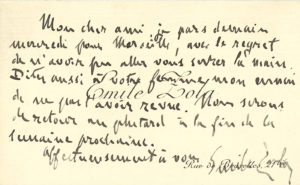 Mon cher ami, je pars demain
mercredi pour Marseille, avec le regret
de n'avoir pu aller vous serrer la main.
Dites aussi à votre femme mon ennui
Emile Zola
de ne pas l'avoir revue. Nous serons
de retour au plus tard à la fin de la
semaine prochaine.
Affectueusement à vous
Rue de Bruxelles, 21 bis